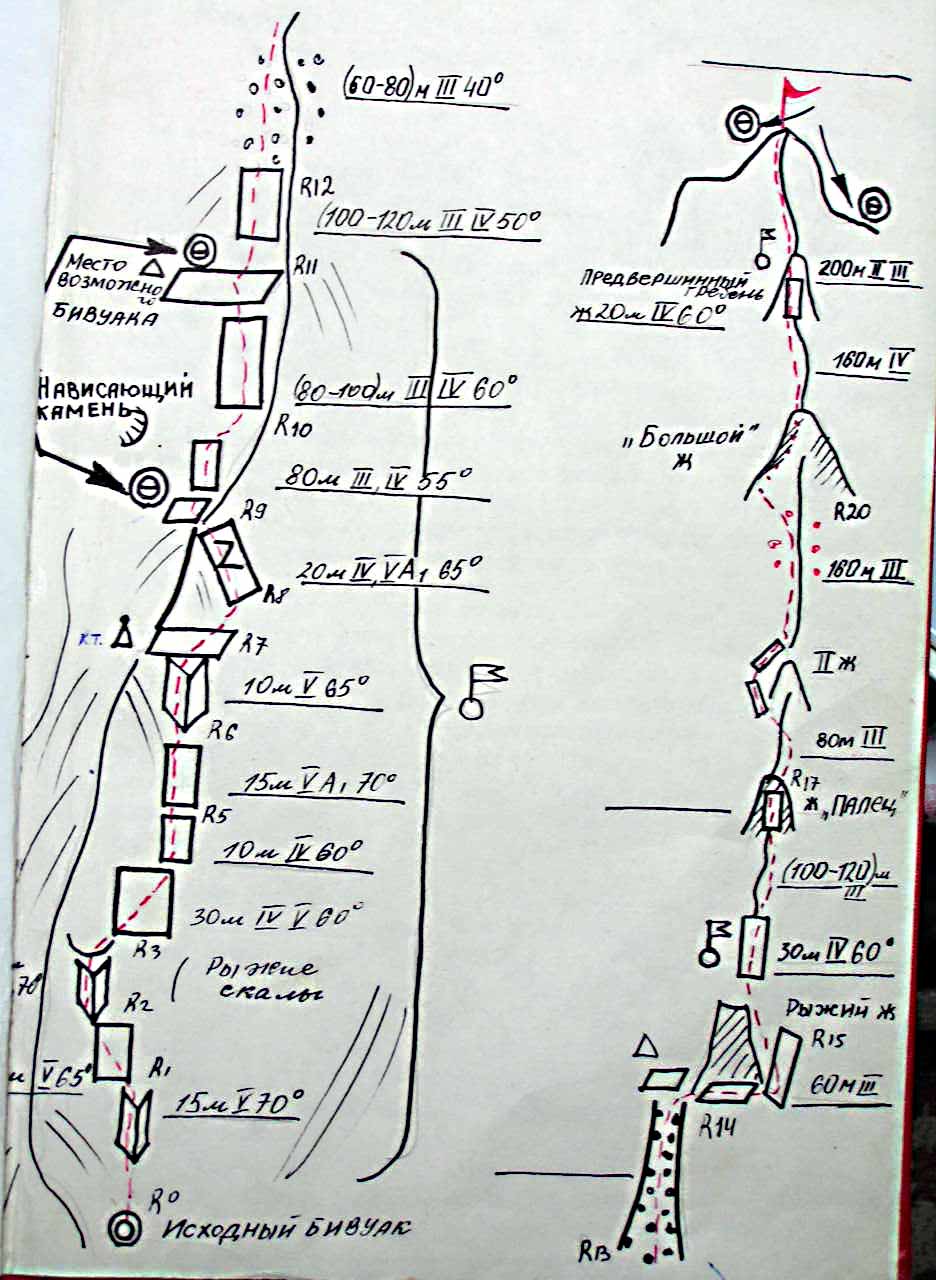 (60-80)м III 40°
R12
(100-120м III IV 50°
R11
Место
возможно
го
БИВУАКА
Нависающий
камень
(80-100)м III IV 60°
R10
80м III, IV 55°
R9
20м IV, VA1 65°
R8
кт.
R7
10м V 65°
R6
15м VA1 70°
R5
10м IV 60°
30м IV V 60°
R3
Рыжие
скалы
70°
R2
м V 65°
R1
15м V 70°
R0
Исходный БИВУАК
200м II III
Предвершинный
гребень
ж 20м IV 60°
160м IV
„Большой"
Ж
R20
160м III
II ж
80м III
R17
Ж „ПАЛЕЦ"
(100-120)м
III
30м IV 60°
Рыжий ж
R15
60м III
R14
R13